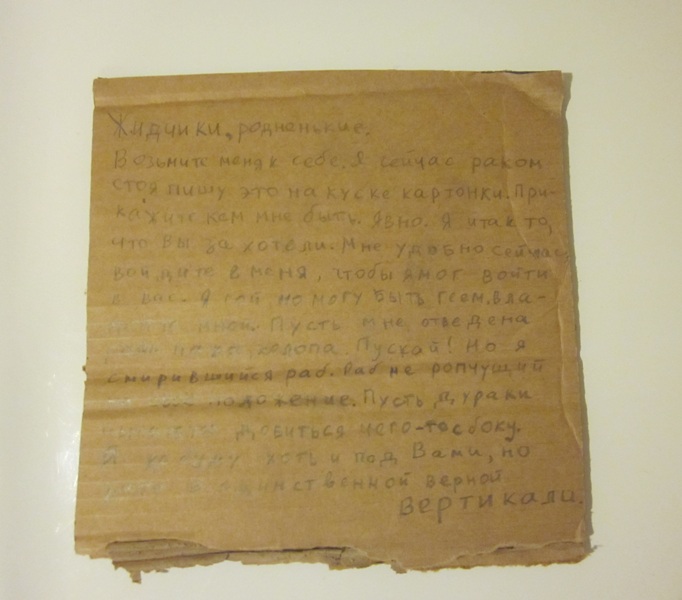 Жидчики, родненькие.
Возьмите меня к себе. Я сейчас раком
стоя пишу это на куске картонки. При-
кажите кем мне быть. Явно. Я итак то,
что Вы за хотели. Мне удобно сейчас,
войдите в меня, чтобы я мог войти
в вас. Я гей но могу быть всем. Вла-
мной. Пусть мне отведена
холопа. Пускай! Но я
смирившийся раб. Раб не ропчущий
положение. Пусть дураки
добиться чего-то сбоку.
Я буду хоть и под Вами, но
в единственной верной
вертикали.